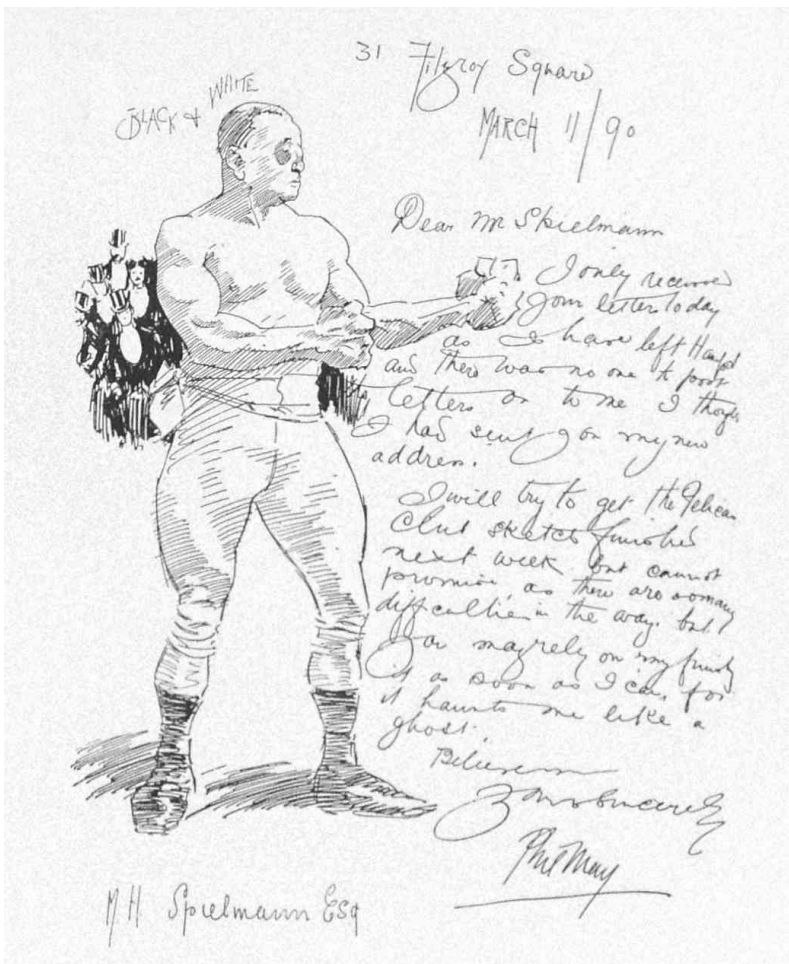 31 Fitzroy Square
BLACK & WHITE
MARCH 11/90
Dear Mr Spielmann
I only received
your letter today
as I have left
and there was no one to
letters on to me I
I had sent you my new
address.
I will try to get the Pelican
Club sketch finished
next week but cannot
promise, as there are so many
difficulties in the way. but
you may rely on my
it as soon as I can, for
it haunts me like a
ghost.
Believe me
Yours Sincerely
Phil May
M H Spielmann Esq